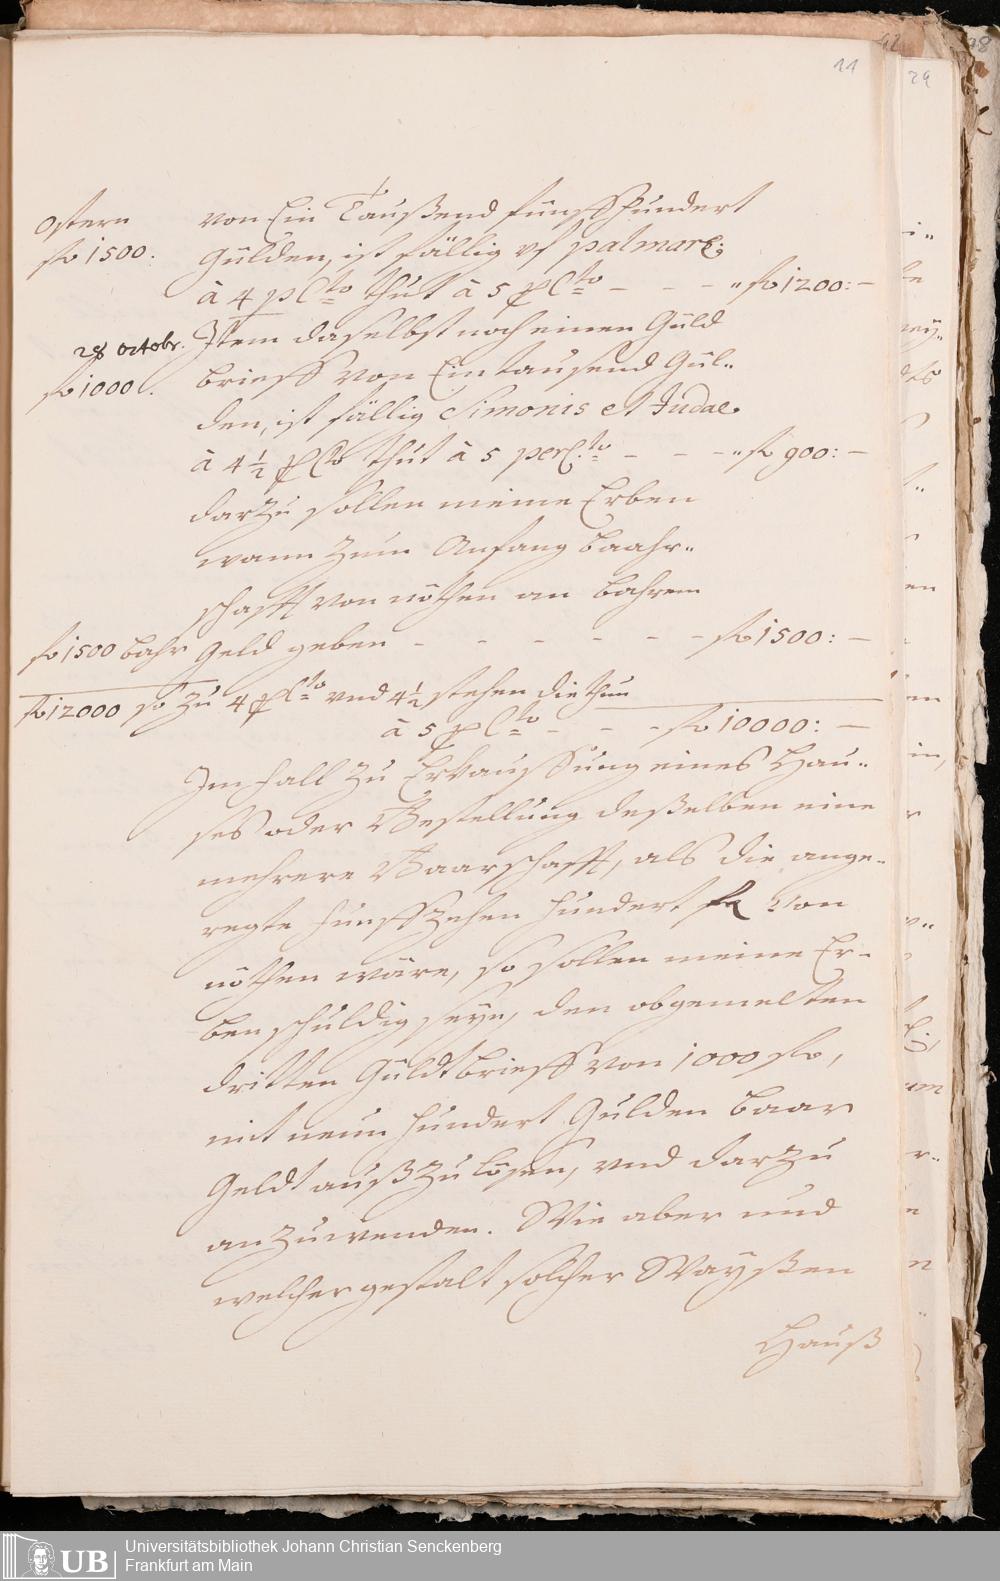 11
Ostern
von Ein Taußend fünffhundert
fl 1500.
Gülden, ist fällig vf palmarȩ
â 4 p Cto thut â 5 p Cto – – – " fl 1200: –
28 octobr.
Jtem daselbst noch einen Güld
fl 1000.
brieff von Ein tausend Gül..
den, ist fällig Simonis et Judae.
â 4½ p Cto thut â 5 per C.to – – – " fl 900: –
darzu sollen meine Erben
wann zum Anfang Baahr..
schafft von nöthen an bahrem
fl 1500 bahr
Geld geben – – – – – – fl 1500: –
fl 12000 so zu 4 p Cto vnd 4½ stehen die thun
â 5 p Cto – – – fl 10000: –
Jm fall zu Erkauffung eines Hau..
ses oder Bestellung deßelben eine
mehrere Baarschafft, als die ange..
regte funffzehen hundert fl von
nöthen wäre, so sollen meine Er-
ben schuldig seyn, den obgemelten
dritten Güldtbrieff von 1000 fl,
mit neun hundert Gulden baar
Geldt außzulösen, vnd darzu
anzuwenden. Wie aber und
welcher gestalt solcher Wayßen
Hauß
29
UB
Universitätsbibliothek Johann Christian Senckenberg
Frankfurt am Main